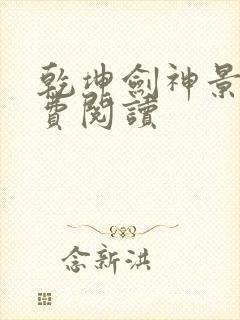 乾坤劍神景
費閱讀
念新洪